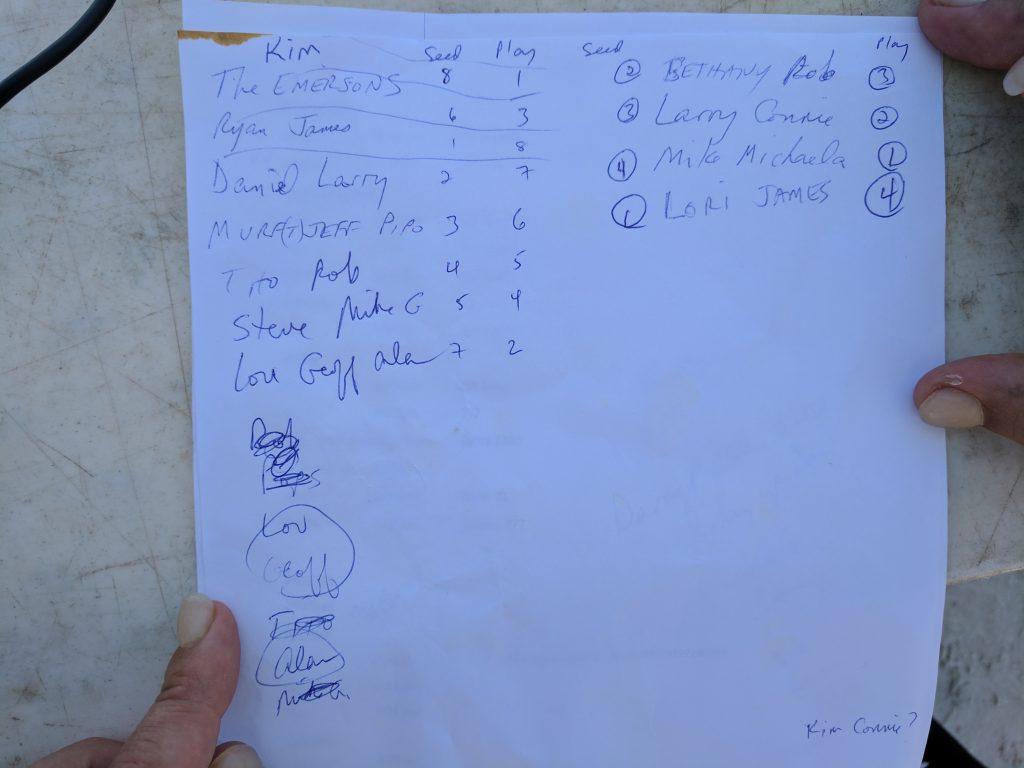 Kim Seed Play
The EMERSONS 8 1
Ryan James 6 3
1 8
Daniel Larry 2 7
MURF(T) JEFF PIPO 3 6
Tito Rob 4 5
Steve Mike G 5 4
Lou Geoff Alan 7 2
Lou
Geoff
Alan
Seed Play
2 BETHANY Rob 3
3 Larry Connie 2
4 Mike Michaela 1
1 LORI JAMES 4
Kim Connie?